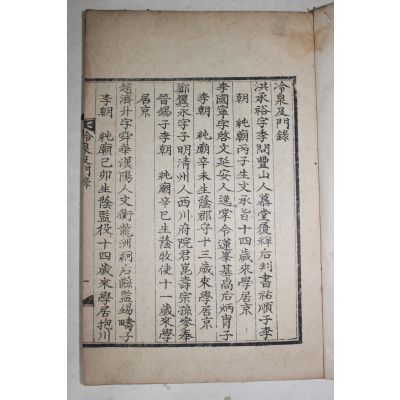 冷泉及門錄
洪承裕字季問豐山人慕堂履祥后判書祐順子李
朝 純廟丙子生文承旨十四歲來學居京
李國寧字啓文延安人逸掌令蓮峯基卨后炳冑子
李朝 純廟辛未生蔭郡守十三歲來學居京
鄭 永字子明清州人西川府院君崑壽宗孫參奉
晉錫子李朝 純廟辛巳生蔭牧使十一歲來學
居京
趙濟升字舜華漢陽人文衡龍洲絅后縣監錫疇子
李朝 純廟己卯生蔭監役十四歲來學居抱川
冷泉及門錄
一